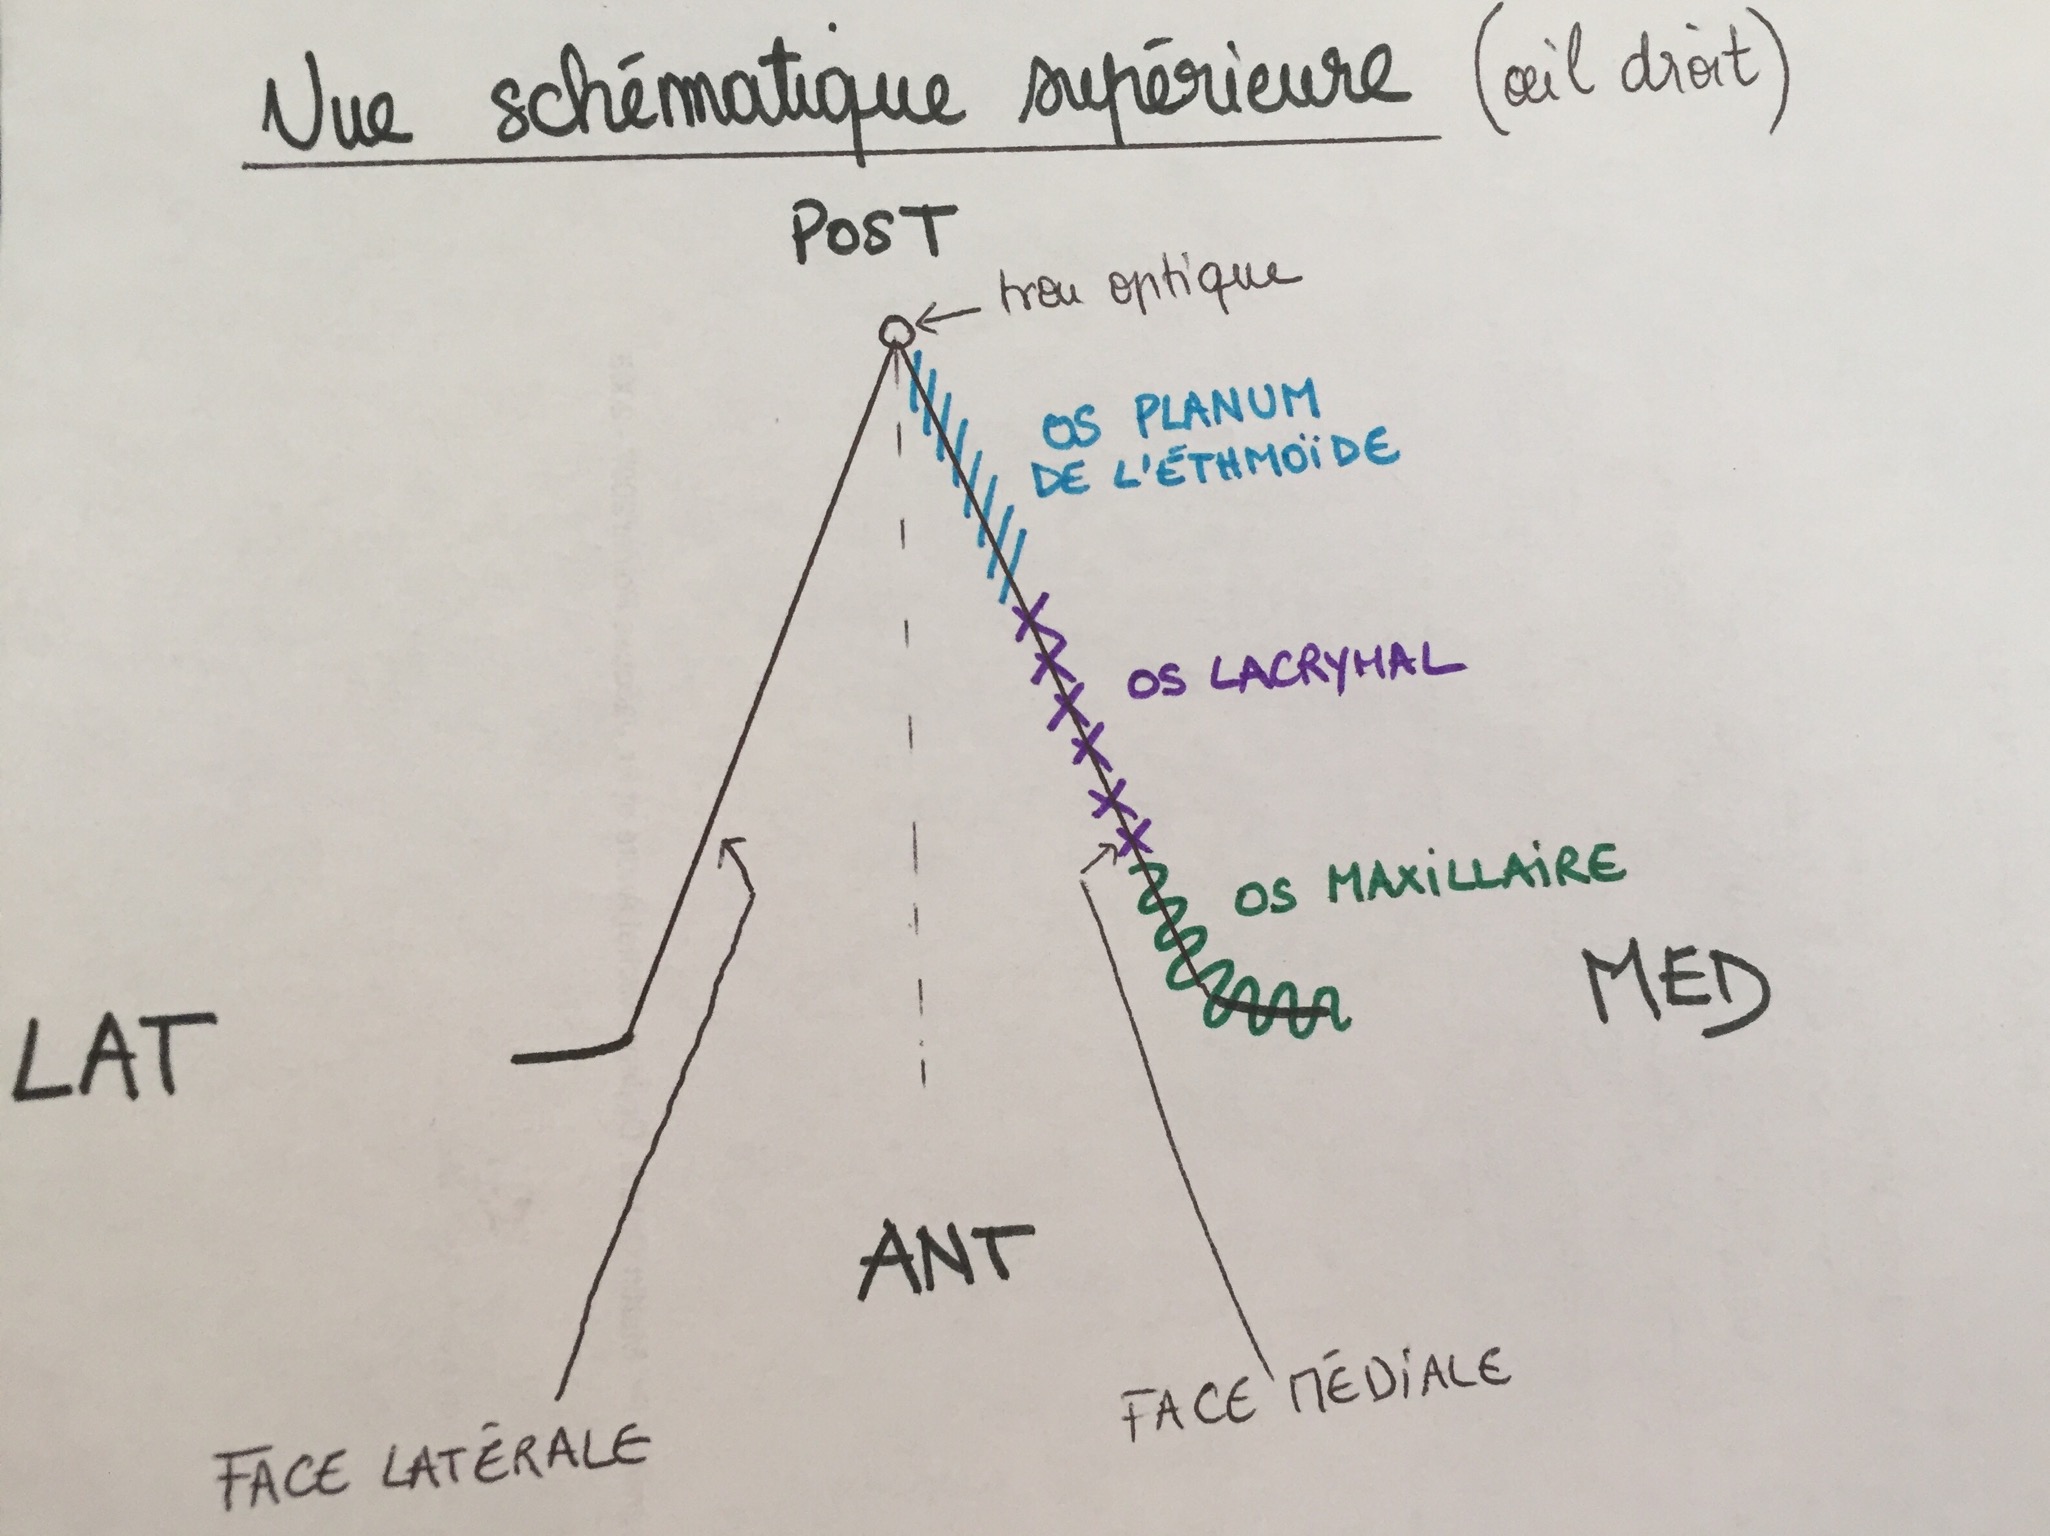 Vue schématique supérieure (œil droit)
POST
trou optique
OS PLANUM
DE L'ÉTHMOÏDE
OS LACRYMAL
OS MAXILLAIRE
MED
LAT
ANT
FACE MÉDIALE
FACE LATÉRALE